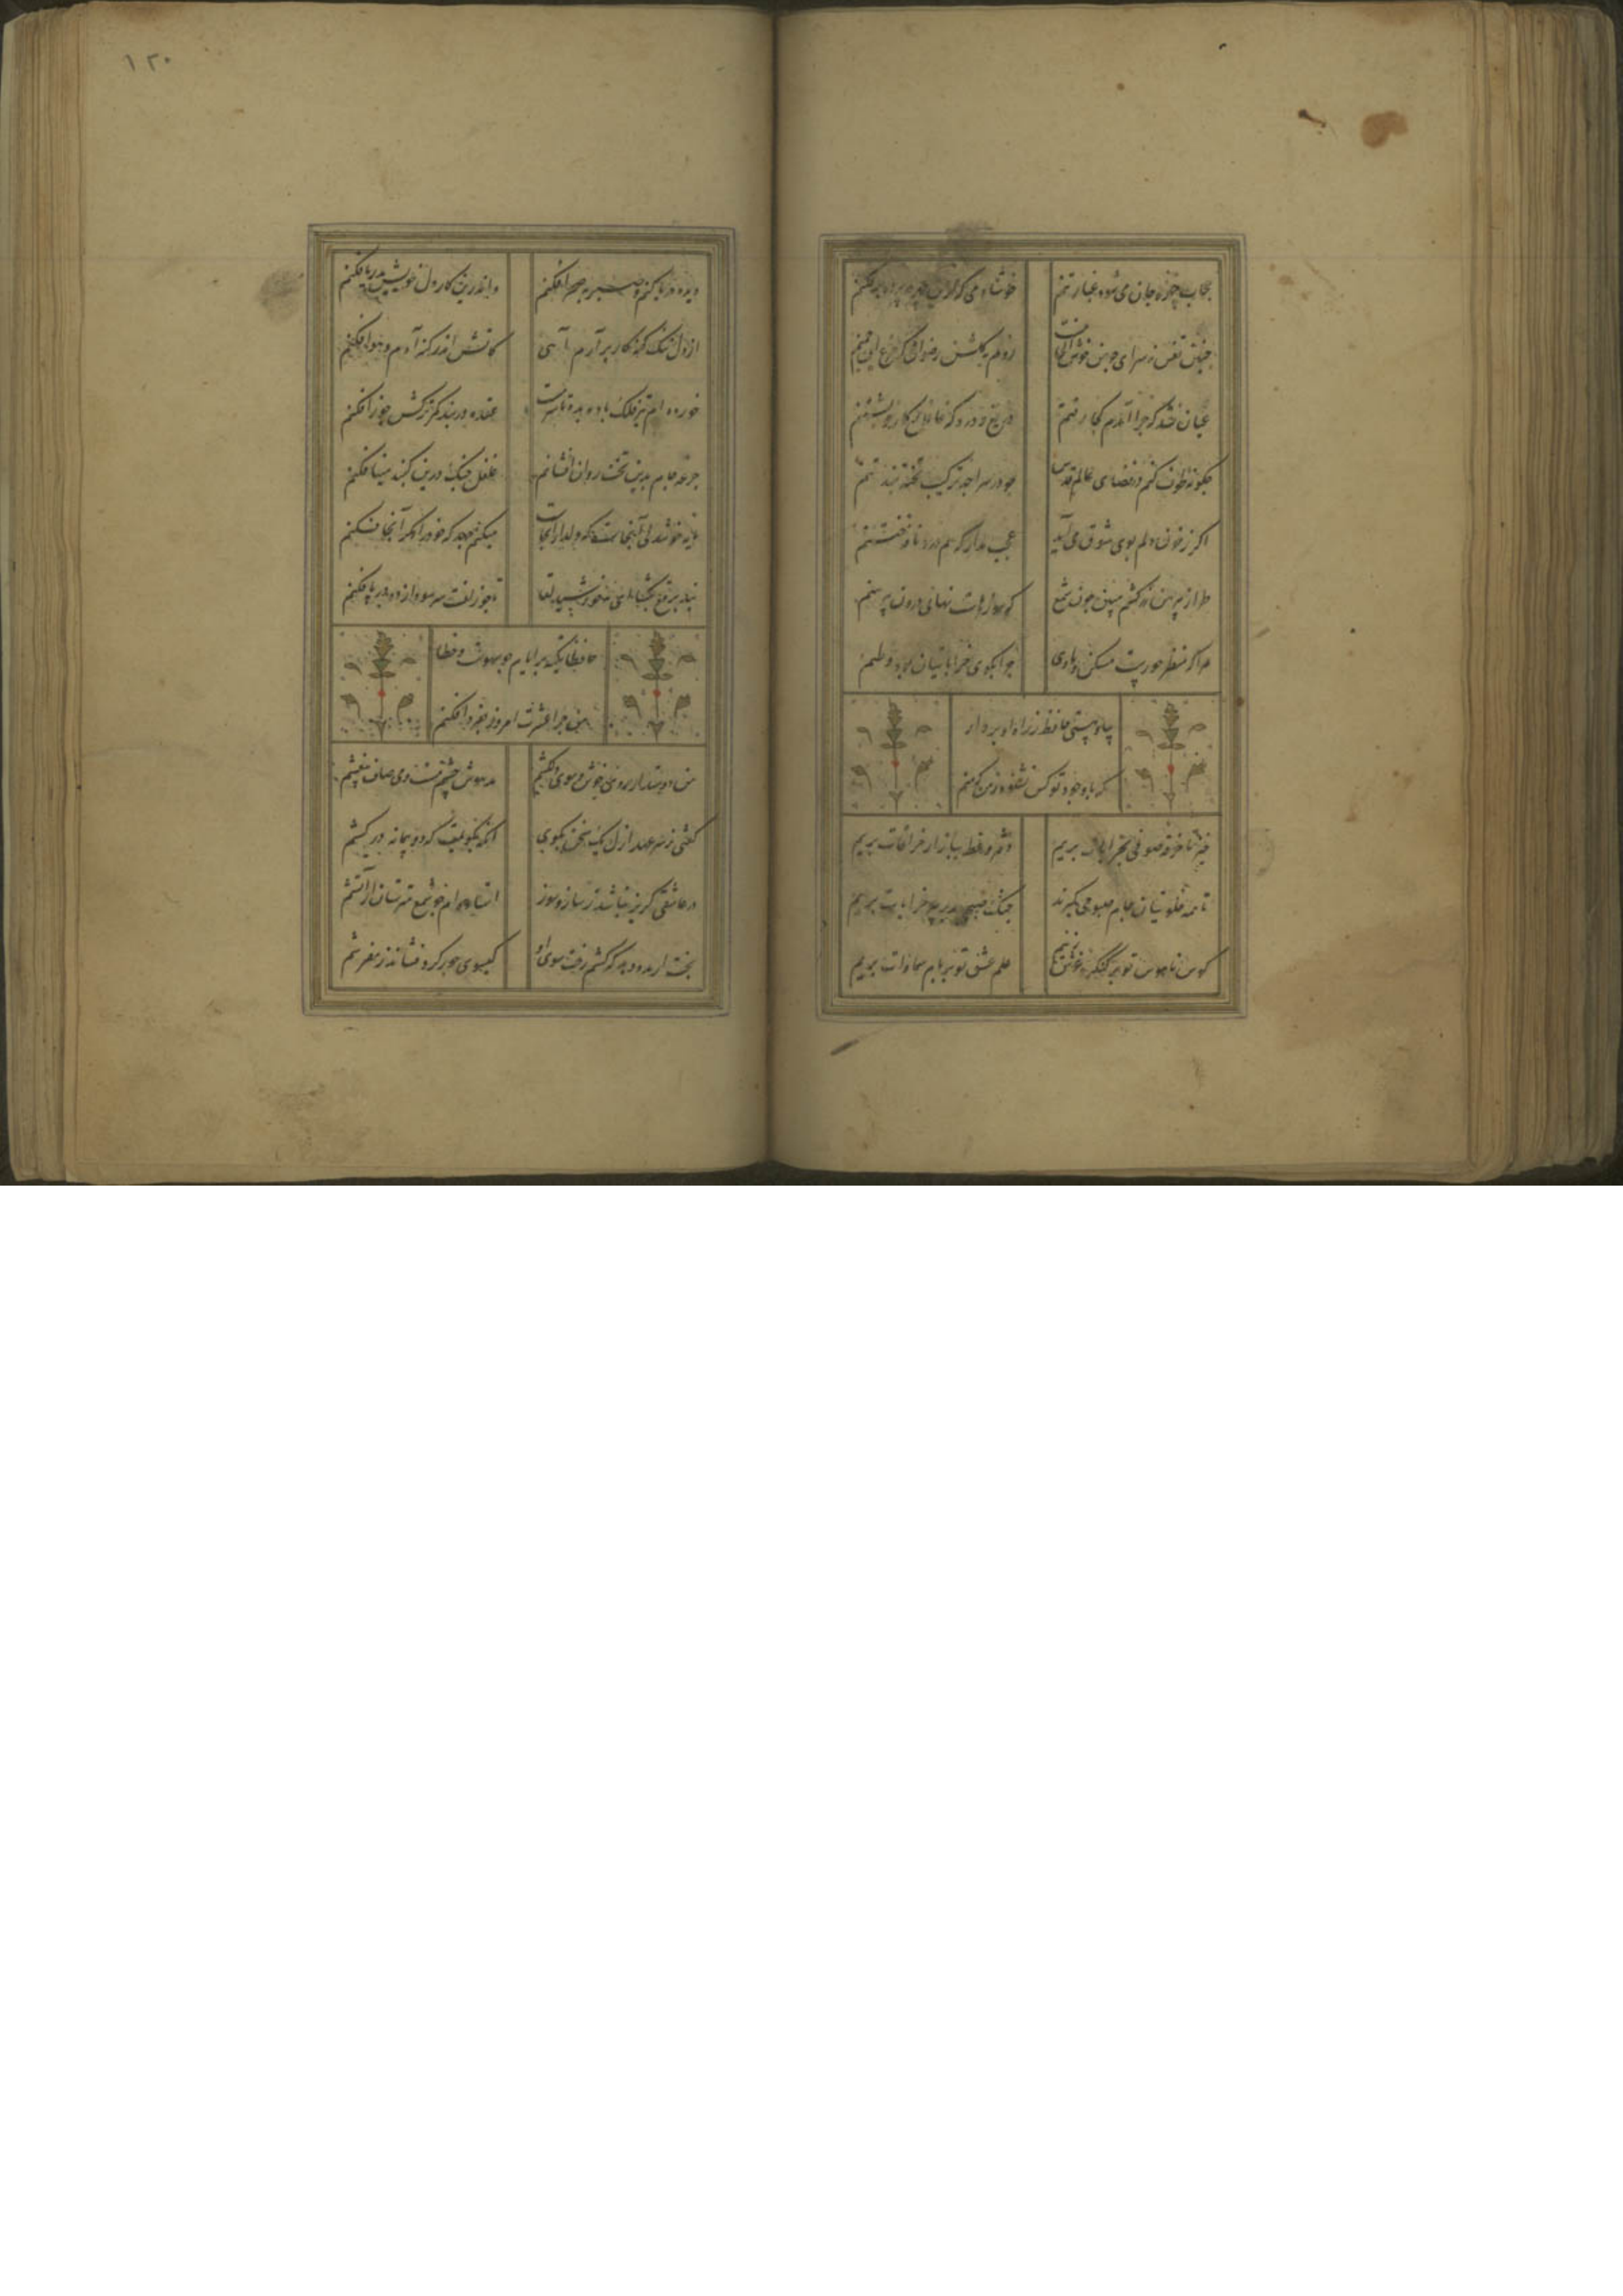 حجاب چهره جان می‌شود غبار تنم
خوشا دمی که از آن چهره پرده برفکنم
چنین قفس نه سزای چو من خوش الحانیست
روم به گلشن رضوان که مرغ آن چمنم
عیان نشد که چرا آمدم کجا رفتم
دریغ و درد که غافل ز کار خویشتنم
چگونه طوف کنم در فضای عالم قدس
چو در سراچه ترکیب تخته بند تنم
اگر ز خون دلم بوی شوق می‌آید
عجب مدار که هم درد نافه ختنم
طراز پیرهن زرکشم مبین چون شمع
که سوزهاست نهانی درون پیرهنم
مرا که منظر حورست مسکن و ماوی
چرا بکوی خراباتیان بود وطنم
بیا و هستی حافظ ز راه او بردار
که با وجود تو کس نشنود ز من که منم
خیز تا خرقه صوفی بخرابات بریم
شطح و بازار خرافات بریم
تا همه خلوتیان جام صبوحی گیرند
چنگ صبحی بدر پیر خرابات بریم
کوس ناموس تو بر کنگره عرش زنیم
علم عشق تو بر بام سماوات بریم
۱۲۰
دیده دریا کنم و صبر به صحرا فکنم
واندرین کار دل خویش بدریا فکنم
از دل تنگ گنه کار برآرم آهی
کاتش اندر گنه آدم و حوا فکنم
خورده‌ام تیر فلک باده بده تا سرمست
عقده در بند کمر ترکش جوزا فکنم
جرعه جام برین تخت روان افشانم
غلغل چنگ درین گنبد مینا فکنم
مایه خوشدلی آنجاست که دلدار آنجاست
میکنم جهد که خود را مگر آنجا فکنم
بند برقع بگشا ای مه خورشید لقا
تا چو زلفت سر سودازده در پا فکنم
حافظا تکیه بر ایام چو سهوست و خطا
من چرا عشرت امروز بفردا فکنم
من دوستدار روی خوش و موی دلکشم
مدهوش چشم مست و می صاف بیغشم
گفتی ز سر عهد ازل یک سخن بگوی
آنگه بگویمت که دو پیمانه درکشم
در عاشقی گزیر نباشد ز ساز و سوز
استاده‌ام چو شمع مترسان ز آتشم
بخت ار مدد دهد که کشم رخت سوی او
گیسوی حور گرد فشاند ز مفرشم